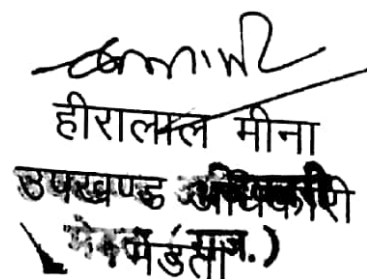 हीरालाल मीना
उपखण्ड अधिकारी
मेड़ता (राज.)